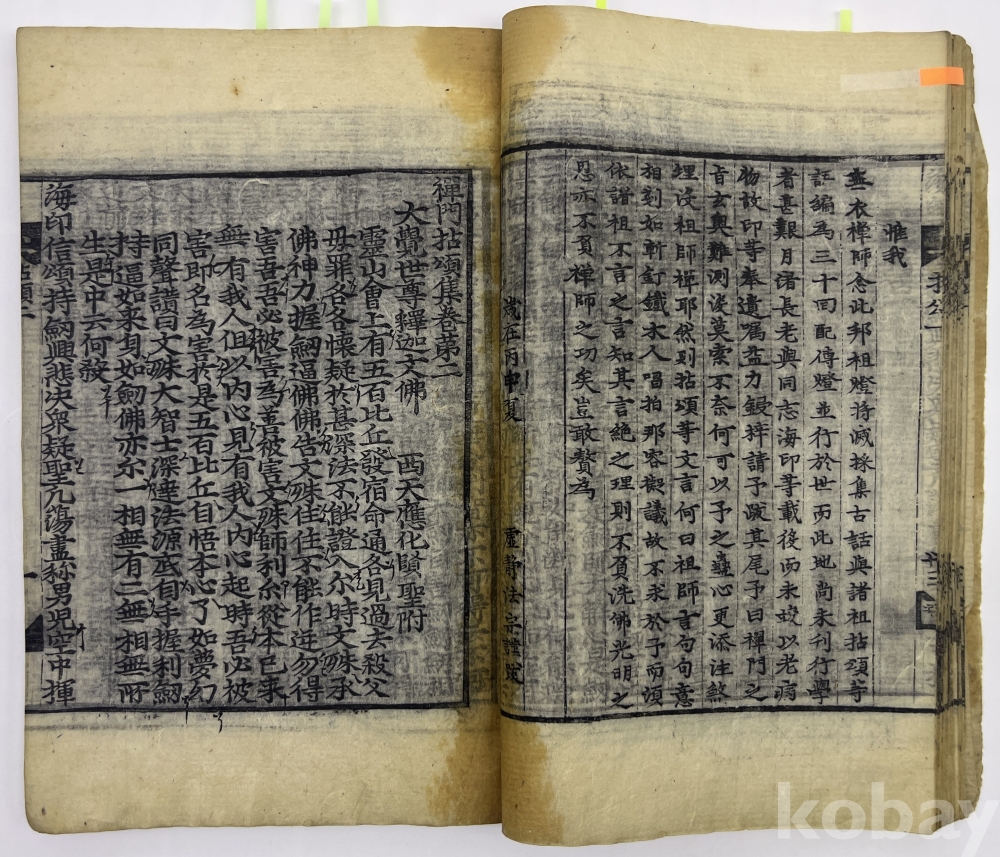 雅我
無衣禪師念此邦祖燈將滅採集古話與諸祖拈頌等
話編為三十回配傳燈並行於世而此地尚未刊行學
者喜艱月渚長老與同志海印等載後而未
以老病
物故印等奉遺囑盃力鋟梓請予跋其尾予曰禪門之
旨玄奧難測淡莫索不奈何可以予之
心更添注煞
埋沒祖師禪耶然則拈頌等文言何曰祖師言句句意
相刻如斬釘鐵木人唱拍那容擬議故不求於予而須
依諸祖不言之言知其言絕之理則不負洗佛光明之
恩亦不負禪師之功矣豈敢贅為
歲在丙申夏 虛靜法宗謹跋
禪門拈頌集卷第二
大覺世尊釋迦文佛 西天應化賢聖附
靈山會上有五百比丘發宿命通各見過去殺父
母罪各各懷疑於甚深法不能證入尒時文殊承
佛神力握劒逼佛佛告文殊住住不能作逆勿得
害吾吾必被害為善被害文殊師利尒從本已來
無有我人但以內心見有我人內心起時吾必被
害即名為害於是五百比丘自悟本心了如夢幻
同聲讃曰文殊大智士深達法源底自手握利劒
持逼如来身如劒佛亦尒一相無有二無相無所
生是中云何殺
海印信頌持劒興悲决衆疑聖凡蕩盡称男兒空中揮
kobay